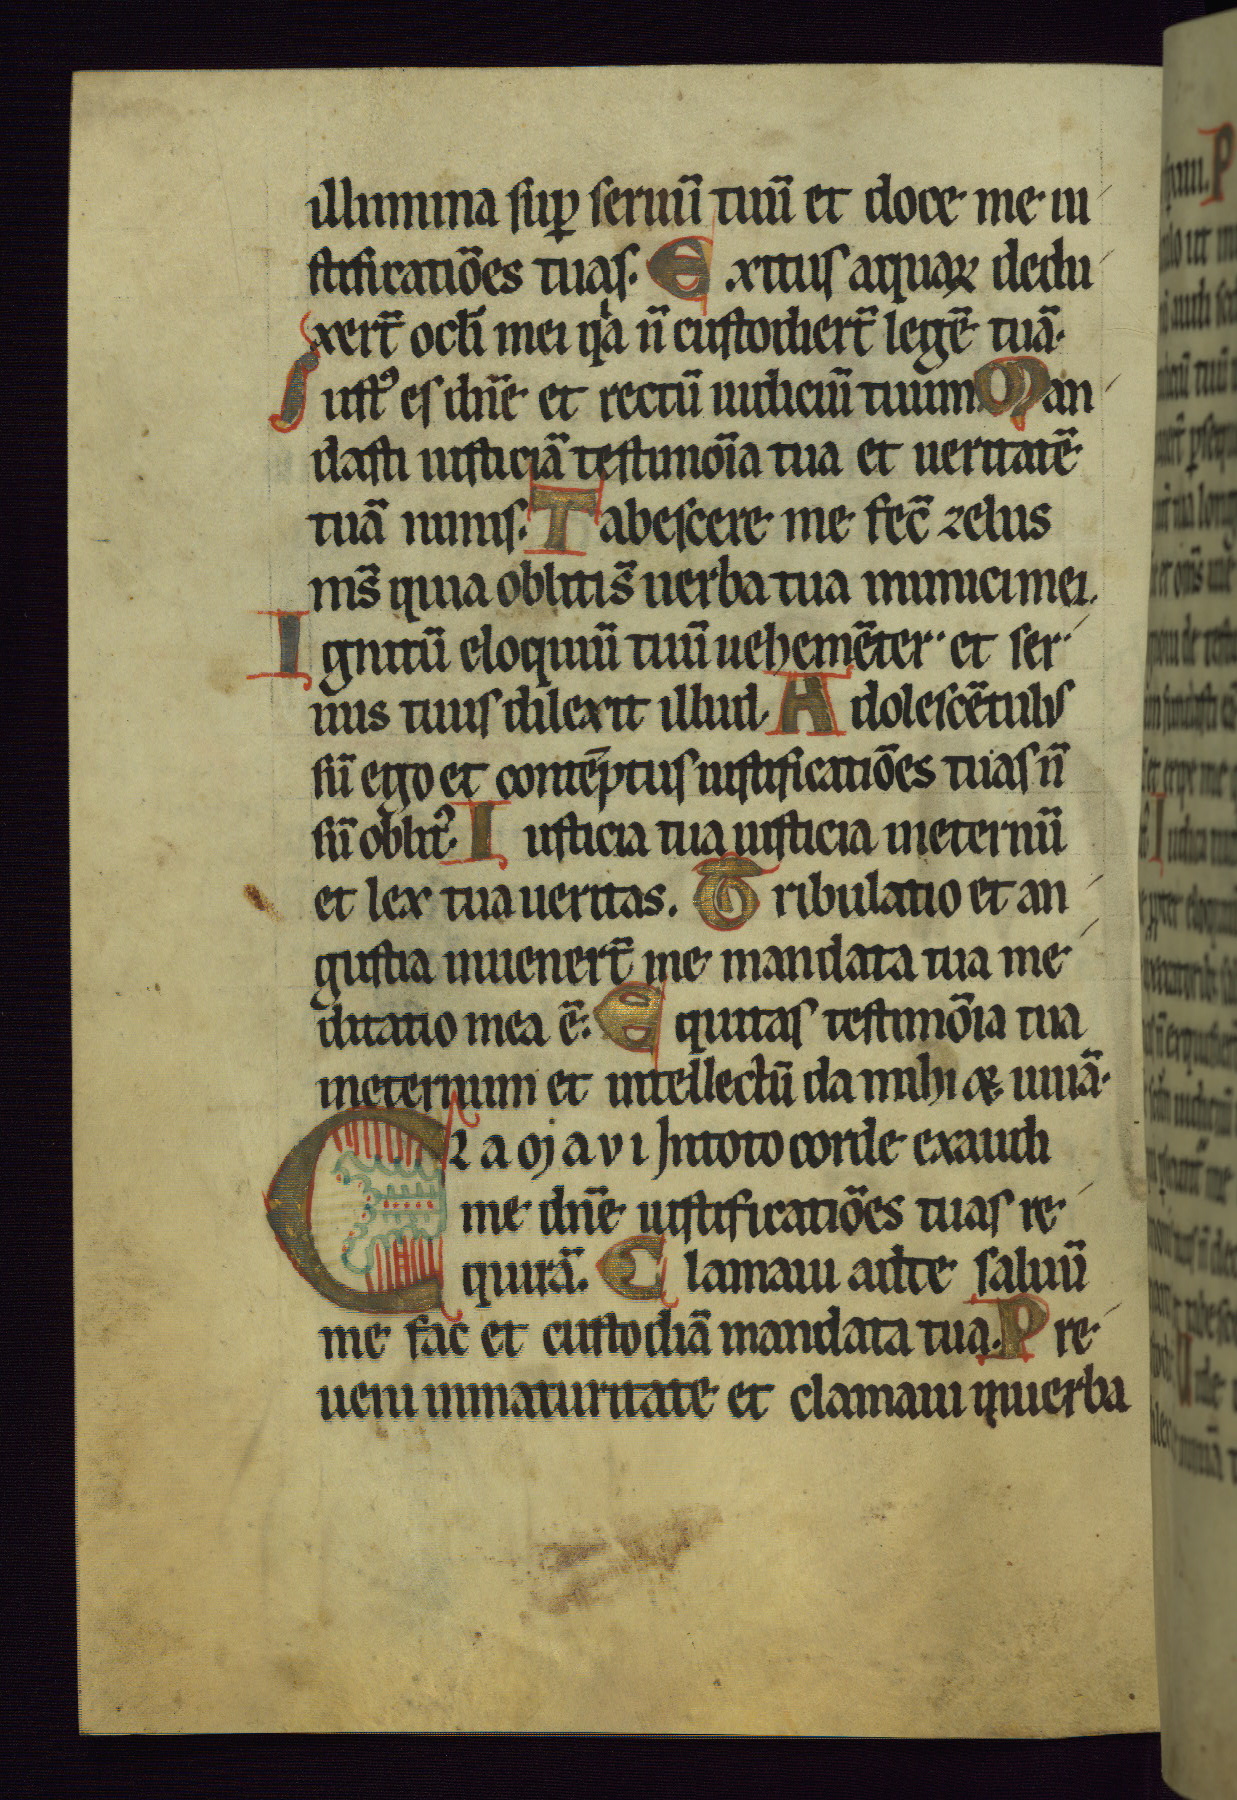 illumina suꝑ seruū tuū et doce me iu
stificatiōes tuas. Exitus aquaꝝ dedu
xert̄ oculi mei qa n̄ custodiert̄ legē tuā.
Iustꝰ es dn̄e et rectū iudiciū tuum Man
dasti iusticiā testimōia tua et ueritatē
tuā nimis. Tabescere me fec̄ zelus
ms̄ quia obliti s̄ uerba tua inimici mei.
Ignitū eloquiū tuū uehemēter et ser
uus tuus dilexit illud. Adolescētulus
sū ego et contēptus iustificatiōes tuas n̄
sū oblitꝰ. Iusticia tua iusticia ineternū
et lex tua ueritas. Tribulatio et an
gustia inuenert̄ me mandata tua me
ditatio mea ē. Equitas testimōia tua
ineternum et intellectū da mihi & uiuā.
CLAMAVI In toto corde exaudi
me dn̄e iustificatiōes tuas re
quirā. Clamaui ad te saluū
me fac et custodiā mandata tua. Pre
ueni inmaturitate et clamaui inuerba